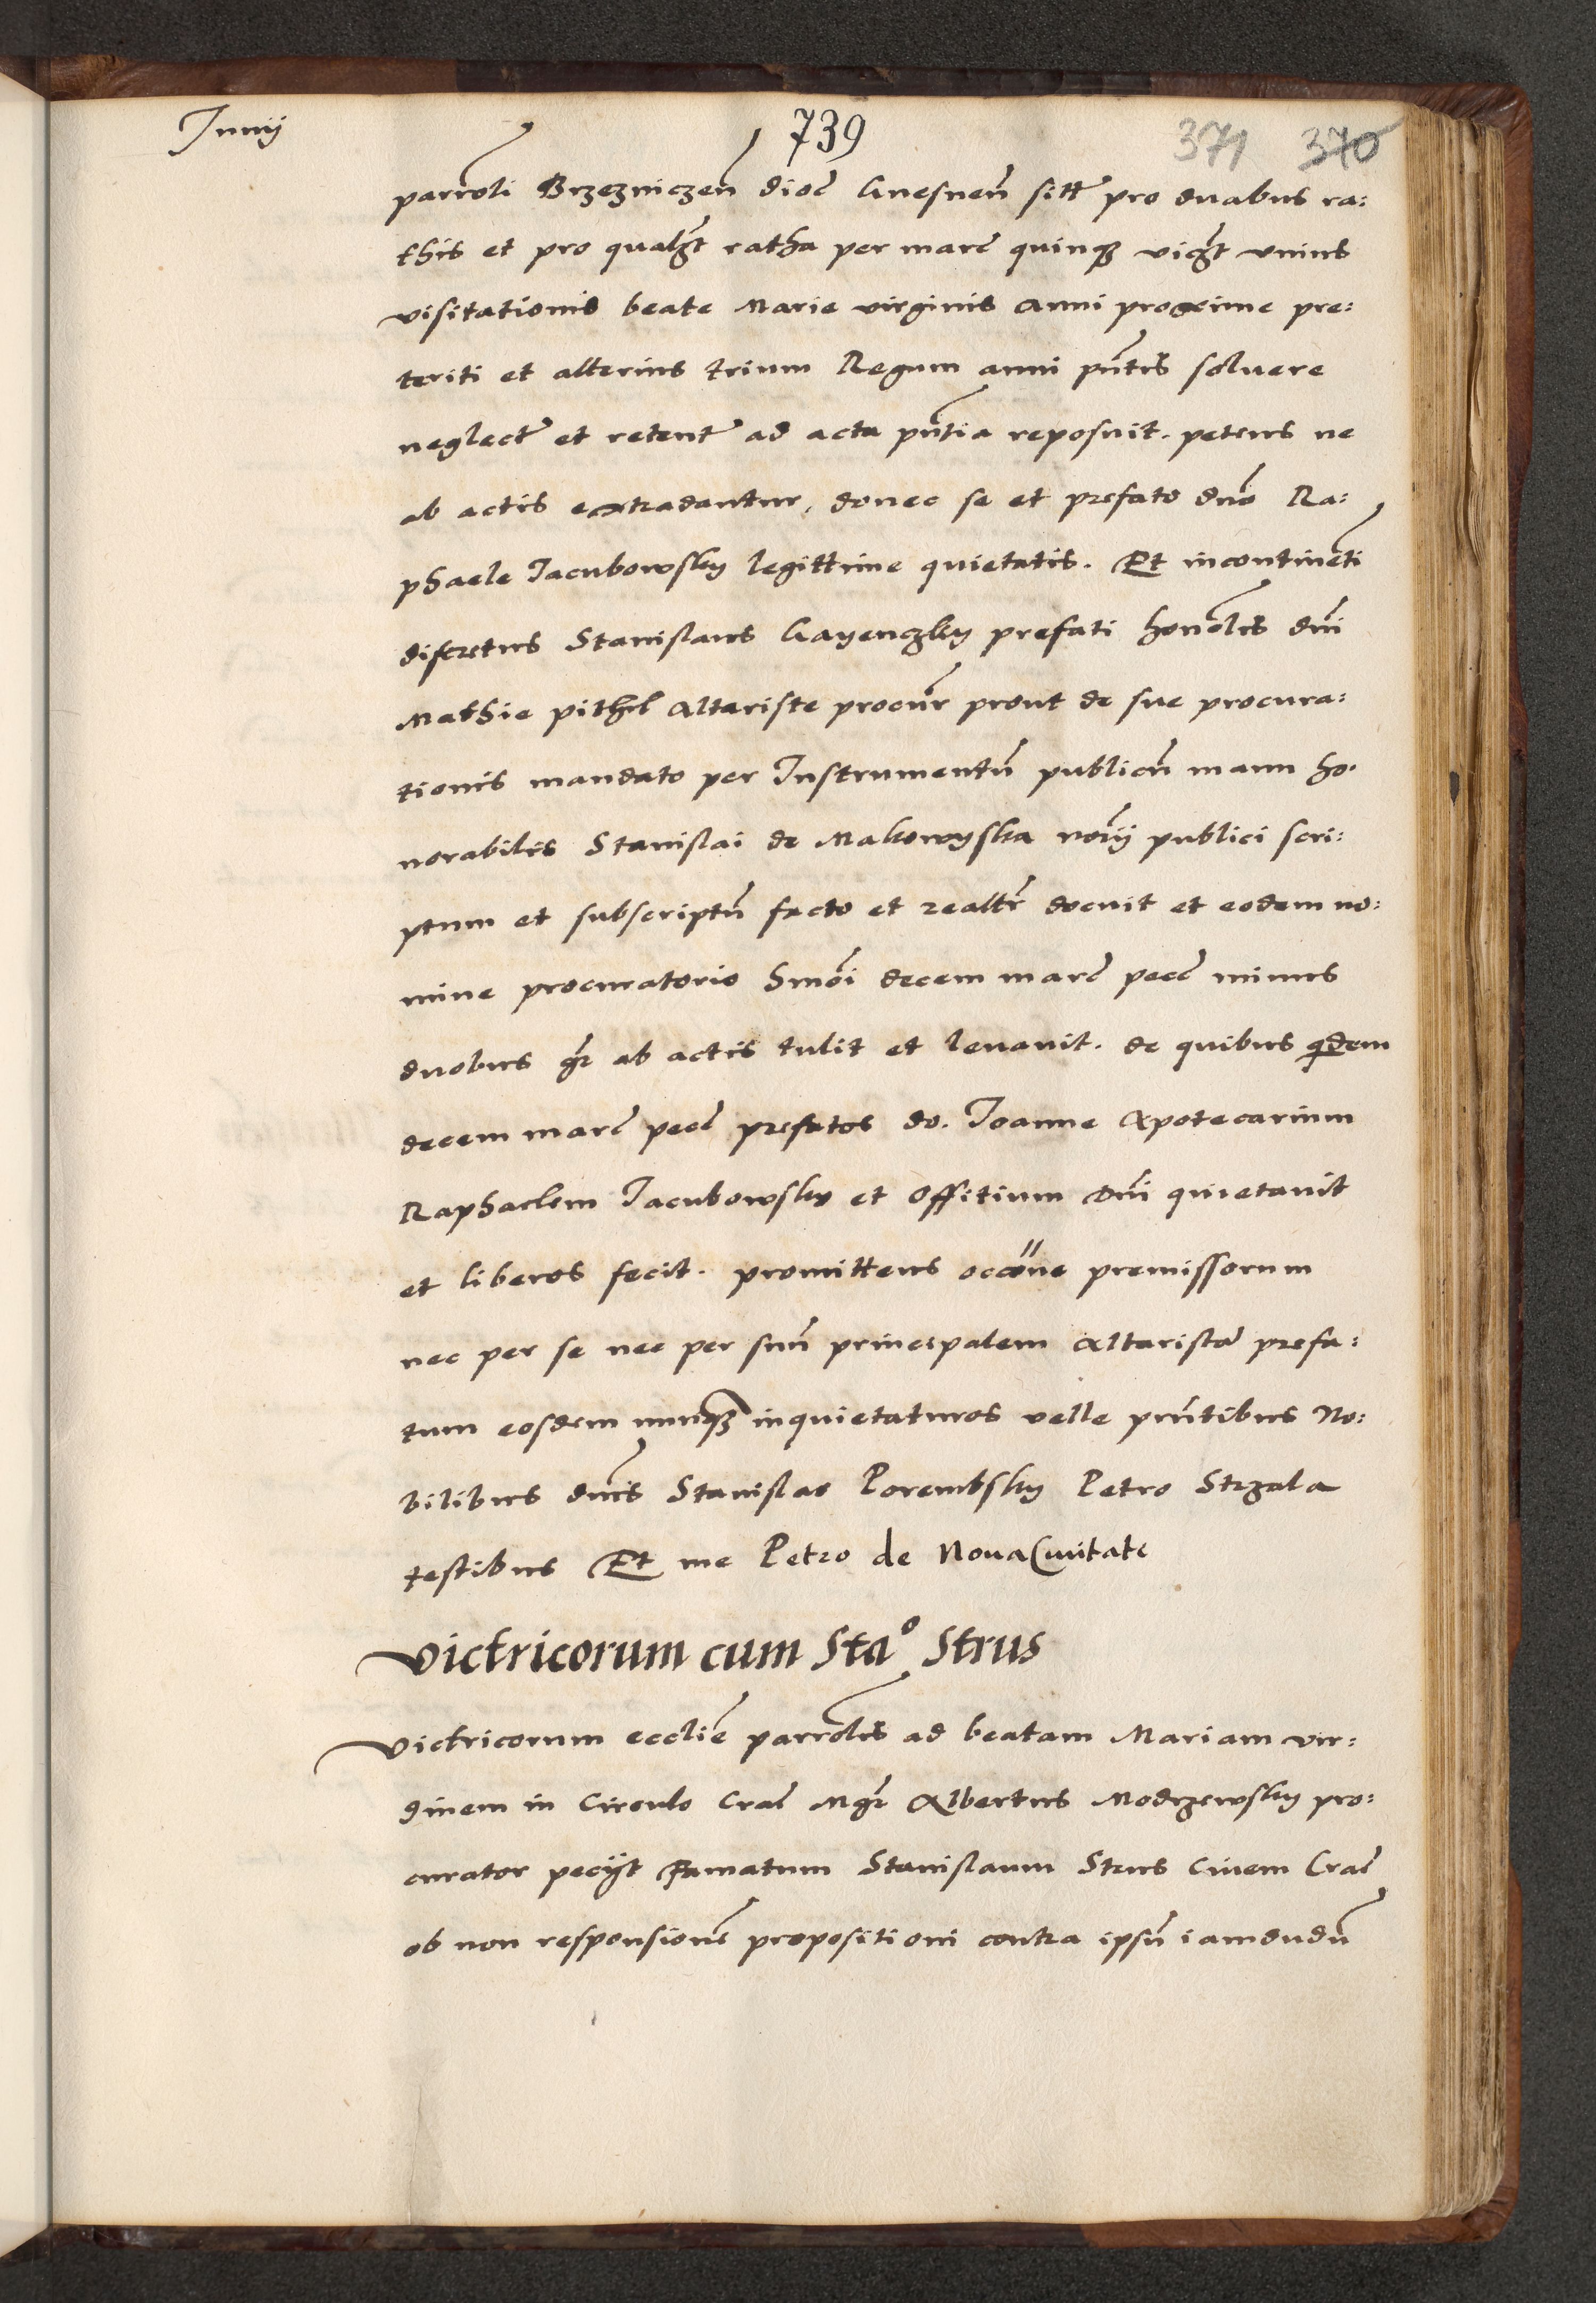 Junij
739
371 370
parroli Brzezniczen̄ dioc̄ Gnesnen̄ sitt̄ pro duabus ra:
this et pro qualꝫt ratha per marc̄ quinqꝫ vigt̄ vnius
visitationis beate Marie virginis anni proxime pre:
teriti et alterius trium Regum anni pn̄tis soluere
neglect̄ et retent̄ ad acta pn̄tia reposuit. petens ne
ab actis extradantur, donec se et prefato dn̄o Ra:
phaele Jacubowsky legittime quietatis. Et incontinēti
discretus Stanislaus Gayenczky prefati honōlis dn̄i
Mathie pithel Altariste procūr prout de sue procura:
tionis mandato per Instrumentū publicū manu ho.
norabilis Stanislai de Makowyska no͞rij publici scri:
ptum et subscriptū facto et realtr̄ docuit et eodem no:
mine procuratorio hmōi decem marc̄ pecc̄ minus
duobus gr̄ ab actis tulit et leuauit. de quibus qdem
decem marc̄ pecc̄ prefatos do. Joanne Apotecarium
Raphaelem Jacubowsky et Offitium dn̄i quietauit
et liberos fecit. promittens occōne premissorum
nec per se nec per suū principalem Altaristā prefa:
tum eosdem nunqꝫ inquietaturos velle pn̄tibus No:
bilibus dn̄is Stanislao Porembsky Petro Strzala
testibus Et me Petro de Noua Ciuitate
Victricorum cum Sta° Strus
Victricorum eccliē parrōlis ad beatam Mariam vir:
ginem in Circulo Crac̄ Mgr̄ Albertus Modrzewsky pro:
curator pecijt Famatum Stanislaum Strus Ciuem Crac̄
ob non responsionē propositioni contra ipsū iamdudū